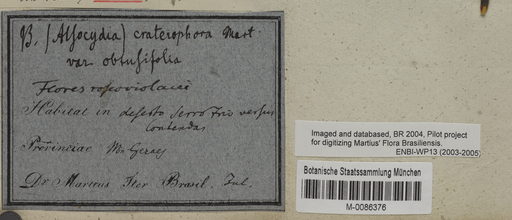 B. (Alsocydia) craterophora Mart.
var obtusifolia
Flores roseoviolacei
Habitat in deserto Serro Frio versus
Contendas
Provinciae Min Geraes
Dr Martius Iter Brasil. Jul.
Imaged and databased, BR 2004, Pilot project
for digitizing Martius' Flora Brasiliensis.
ENBI-WP13 (2003-2005)
Botanische Staatssammlung München
M-0086376